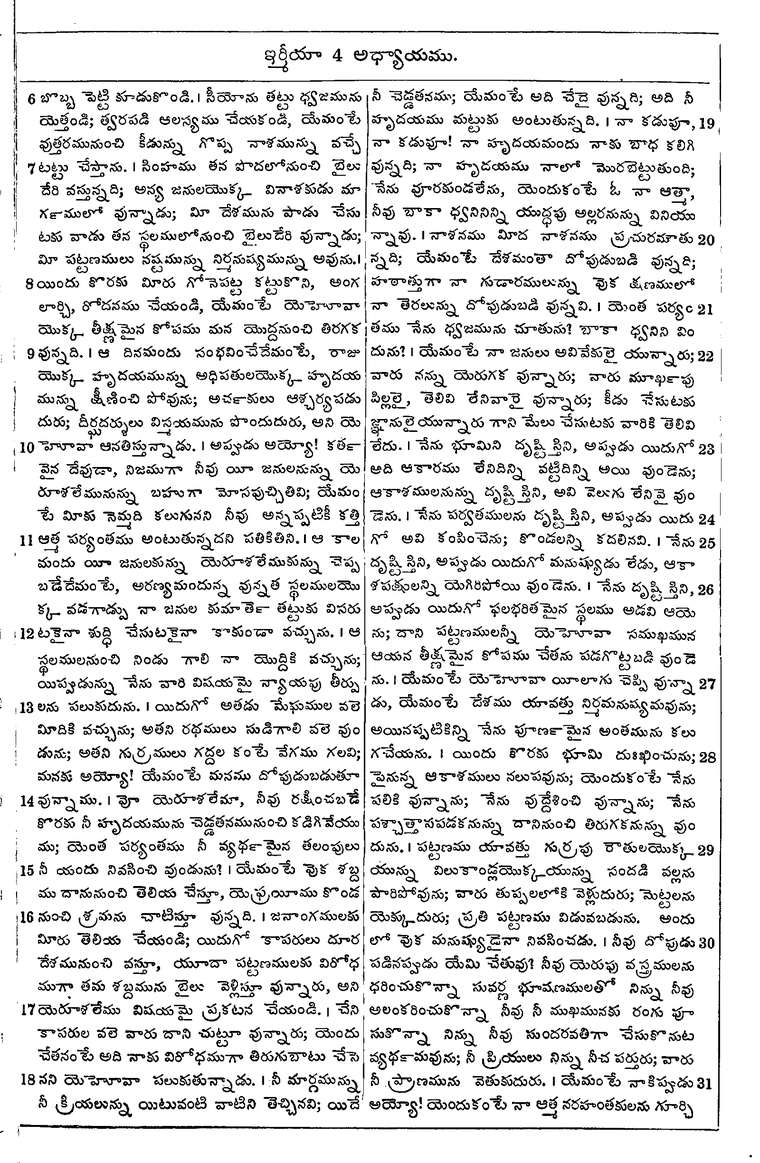 ఇర్మీయా 4 అధ్యాయము.
6 బొబ్బ పెట్టి కూడుకొండి. । సీయోను తట్టు ధ్వజమును
యెత్తండి; త్వరపడి ఆలస్యము చేయకండి, యేమంటే
వుత్తరమునుంచి కీడున్ను గొప్ప నాశమున్ను వచ్చే
7 టట్టు చేస్తాను. । సింహము తన పొదలోనుంచి బైలు
దేరి వస్తున్నది; అన్య జనులయొక్క వినాశకుడు మా
గ౯ములో వున్నాడు; మీ దేశమును పాడు చేసు
టకు వాడు తన స్థలములోనుంచి బైలుదేరి వున్నాడు;
మీ పట్టణములు నష్టమున్ను నిర్మనుష్యమున్ను అవును.।
8 యిందు కొరకు మీరు గోనెపట్ట కట్టుకొని, అంగ
లార్చి, రోదనము చేయండి, యేమంటే యెహోవా
యొక్క తీక్ష్ణమైన కోపము మన యొద్దనుంచి తిరగక
9 వున్నది. । ఆ దినమందు సంభవించేదేమంటే, రాజు
యొక్క హృదయమున్ను అధిపతులయొక్క హృదయ
మున్ను క్షీణించి పోవును; అచ౯కులు ఆశ్చర్యపడు
దురు; దీర్ఘదర్శులు విస్మయమును పొందుదురు, అని యె
10 హోవా ఆనతిస్తున్నాడు. । అప్పుడు అయ్యో! కత౯
వైన దేవుడా, నిజముగా నీవు యీ జనులనున్ను యె
రూశలేమునున్ను బహుగా మోసపుచ్చితివి; యేమం
టే మీకు నెమ్మది కలుగునని నీవు అన్నప్పటికీ కత్తి
11 ఆత్మ పర్యంతము అంటుతున్నదని పతికితిని. । ఆ కాల
మందు యీ జనులకున్ను యెరూశలేముకున్ను చెప్ప
బడేదేమంటే, అరణ్యమందున్న వున్నత స్థలములయొ
క్క వడగాడ్పు నా జనుల కుమాత౯ తట్టుకు విసరు
12 టకైనా శుద్ధి చేసుటకైనా కాకుండా వచ్చును. । ఆ
స్థలములనుంచి నిండు గాలి నా యొద్దికి వచ్చును;
యిప్పుడున్ను నేను వారి విషయమై న్యాయపు తీర్పు
13 లను పలుకుదును. । యిదుగో అతడు మేఘముల వలె
మీదికి వచ్చును; అతని రథములు సుడిగాలి వలె వుం
డును; అతని గుర్రములు గద్దల కంటే వేగము గలవి;
మనకు అయ్యో! యేమంటే మనము దోపుడుబడుతూ
14 వున్నాము. । వో యెరూశలేమా, నీవు రక్షించబడే
కొరకు నీ హృదయమును చెడ్డతనమునుంచి కడిగివేయు
ము; యెంత పర్యంతము నీ వ్యథ౯మైన తలంపులు
15 నీ యందు నివసించి వుండును? । యేమంటే వొక శబ్ద
ము దానునుంచి తెలియ చేస్తూ, యెఫ్రయీము కొండ
16 నుంచి శ్రమను చాటిస్తూ వున్నది. । జనాంగములకు
మీరు తెలియ చేయండి; యిదుగో కాపరులు దూర
దేశమునుంచి వస్తూ, యూదా పట్టణములకు విరోధ
ముగా తమ శబ్దమును బైలు వెళ్లిస్తూ వున్నారు, అని
17 యెరూశలేము విషయమై ప్రకటన చేయండి. । చేని
కాపరుల వలె వారు దాని చుట్టూ వున్నారు; యెందు
చేతనంటే అది నాకు విరోధముగా తిరుగుబాటు చేసె
18 నని యెహోవా పలుకుతున్నాడు. । నీ మార్గమున్ను
నీ క్రియలున్ను యిటువంటి వాటిని తెచ్చినవి; యిదే
నీ చెడ్డతనము; యేమంటే అది చేదై వున్నది; అది నీ
హృదయము మట్టుకు అంటుతున్నది. । నా కడుపూ, 19
నా కడుపూ! నా హృదయమందు నాకు బాధ కలిగి
వున్నది; నా హృదయము నాలో మొరబెట్టుతుంది;
నేను వూరకుండలేను, యెందుకంటే ఓ నా ఆత్మా,
నీవు బాకా ధ్వనినిన్ని యుద్ధపు అల్లరనున్ను వినియు
న్నావు. । నాశనము మీద నాశనము ప్రచురమాతు 20
న్నది; యేమంటే దేశమంతా దోపుడుబడి వున్నది;
హఠాత్తుగా నా గుడారములున్ను వొక క్షణములో
నా తెరలున్ను దోపుడుబడి వున్నవి. । యెంత పర్యం 21
తము నేను ధ్వజమును చూతును? బాకా ధ్వనిని విం
దును? । యేమంటే నా జనులు అవివేకులై యున్నారు; 22
వారు నన్ను యెరుగక వున్నారు; వారు మూఖ౯పు
పిల్లలై, తెలివి లేనివారై వున్నారు; కీడు చేసుటకు
జ్ఞానులైయున్నారు గాని మేలు చేసుటకు వారికి తెలివి
లేదు. । నేను భూమిని దృష్టిస్తిని, అప్పుడు యిదుగో 23
అది ఆకారము లేనిదిన్ని వట్టిదిన్ని అయి వుండెను;
ఆకాశములనున్ను దృష్టిస్తిని, అవి వెలుగు లేనివై వుం
డెను. । నేను పర్వతములను దృష్టిస్తిని, అప్పుడు యిదు 24
గో అవి కంపించెను; కొండలన్ని కదలినవి. । నేను 25
దృష్టిస్తిని, అప్పుడు యిదుగో మనుష్యుడు లేడు, ఆకా
శపక్షులన్ని యెగిరిపోయి వుండెను. । నేను దృష్టిస్తిని, 26
అప్పుడు యిదుగో ఫలభరితమైన స్థలము అడవి ఆయె
ను; దాని పట్టణములన్నీ యెహోవా సముఖమున
ఆయన తీక్ష్ణమైన కోపము చేతను పడగొట్టబడి వుండె
ను. । యేమంటే యెహోవా యీలాగు చెప్పి వున్నా 27
డు, యేమంటే దేశము యావత్తు నిర్మనుష్యమవును;
అయినప్పటికిన్ని నేను పూణ౯మైన అంతమును కలు
గచేయను. । యిందు కొరకు భూమి దుఃఖించును; 28
పైనున్న ఆకాశములు నలుపవును; యెందుకంటే నేను
పలికి వున్నాను; నేను వుద్దేశించి వున్నాను; నేను
పశ్చాత్తాపపడకనున్ను దానినుంచి తిరుగకనున్ను వుం
దును. । పట్టణము యావత్తు గుర్రపు రౌతులయొక్క 29
యున్ను విలుకాండ్లయొక్కయున్ను సందడి వల్లను
పారిపోవును; వారు తుప్పలలోకి వెళ్లుదురు; మెట్టలను
యెక్కుదురు; ప్రతి పట్టణము విడువబడును. అందు
లో వొక మనుష్యుడైనా నివసించడు. । నీవు దోపుడు 30
పడినప్పుడు యేమి చేతువు? నీవు యెరుపు వస్త్రములను
ధరించుకొన్నా సువర్ణ భూషణములతో నిన్ను నీవు
అలంకరించుకొన్నా నీవు నీ ముఖమునకు రంగు పూ
సుకొన్నా నిన్ను నీవు సుందరవతిగా చేసుకొనుట
వ్యథ౯మవును; నీ ప్రియులు నిన్ను నీచ పర్తురు; వారు
నీ ప్రాణమును వెతుకుదురు. । యేమంటే నాకిప్పుడు 31
అయ్యో! యెందుకంటే నా ఆత్మ నరహంతకులను గూర్చి